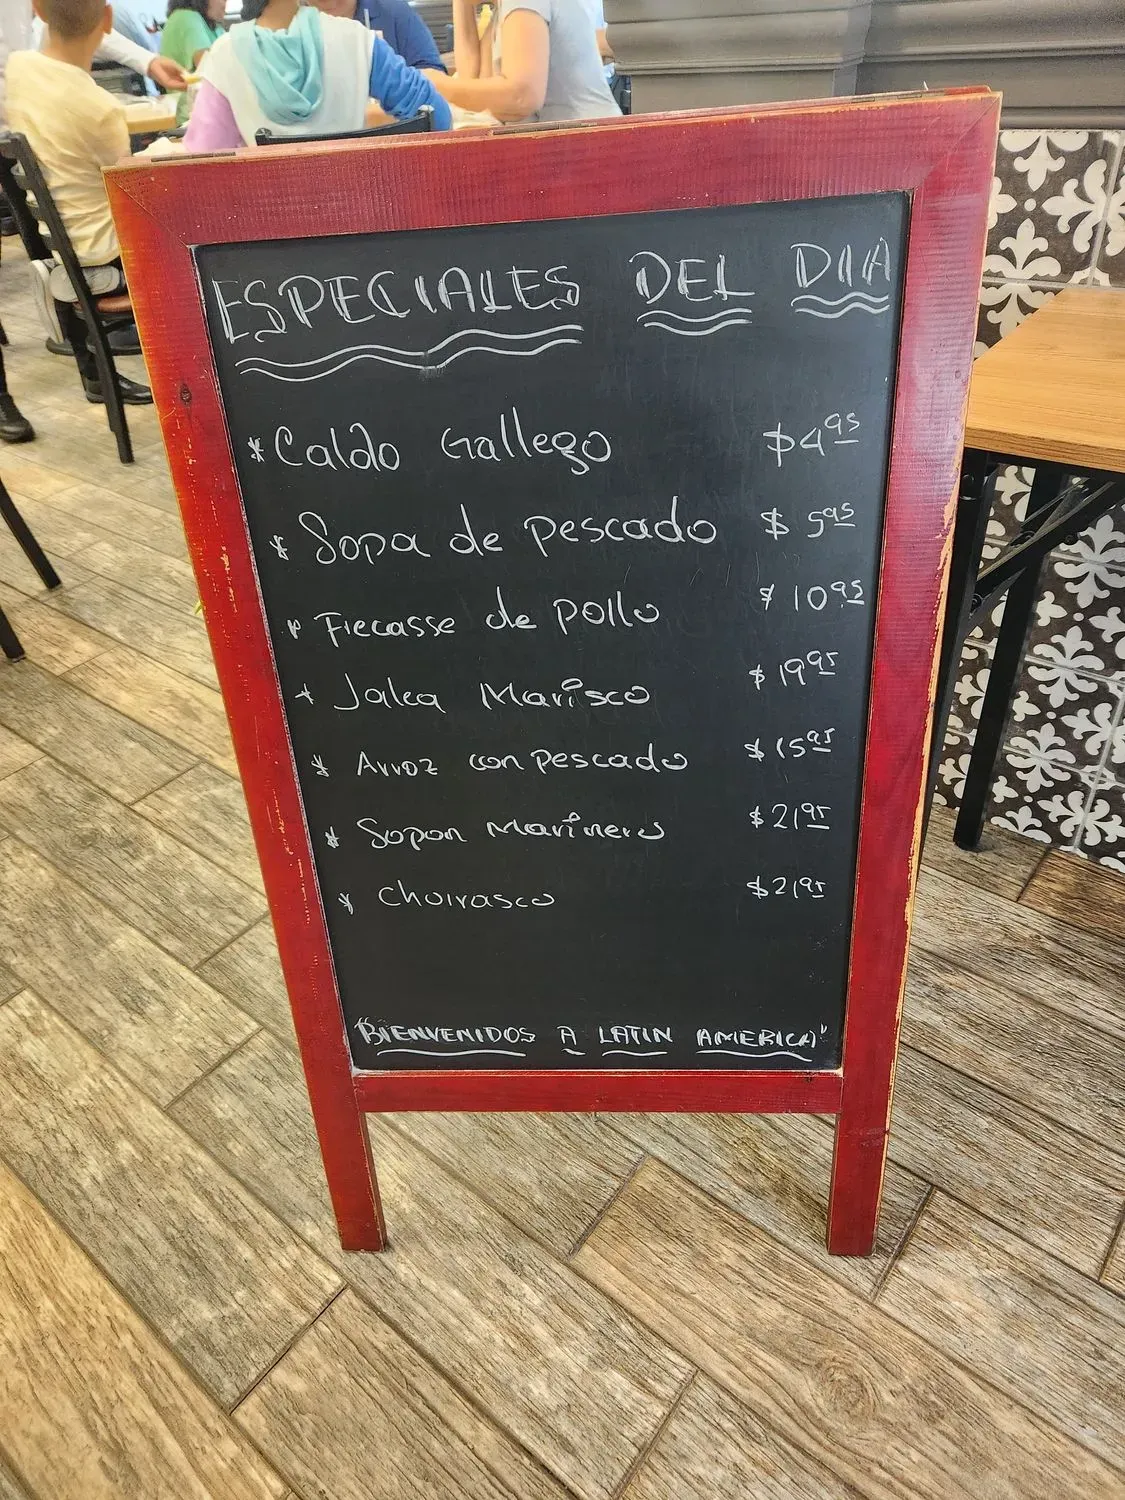 ESPECIALES DEL DIA
* Caldo Gallego $4.95
* Sopa de pescado $5.95
* Frecasse de pollo $10.95
* Jalea Marisco $19.95
* Arroz con pescado $15.95
* Sopon Marinero $21.95
* Choirasco $21.95
"BIENVENIDOS A LATIN AMERICA"